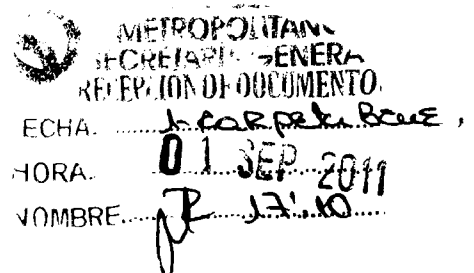 METROPOLITAN
SECRETARI GENERA
RECEPCION DE DOCUMENTO.
ECHA. 1 carpeta
HORA. 01 SEP 2011
NOMBRE. 17:10